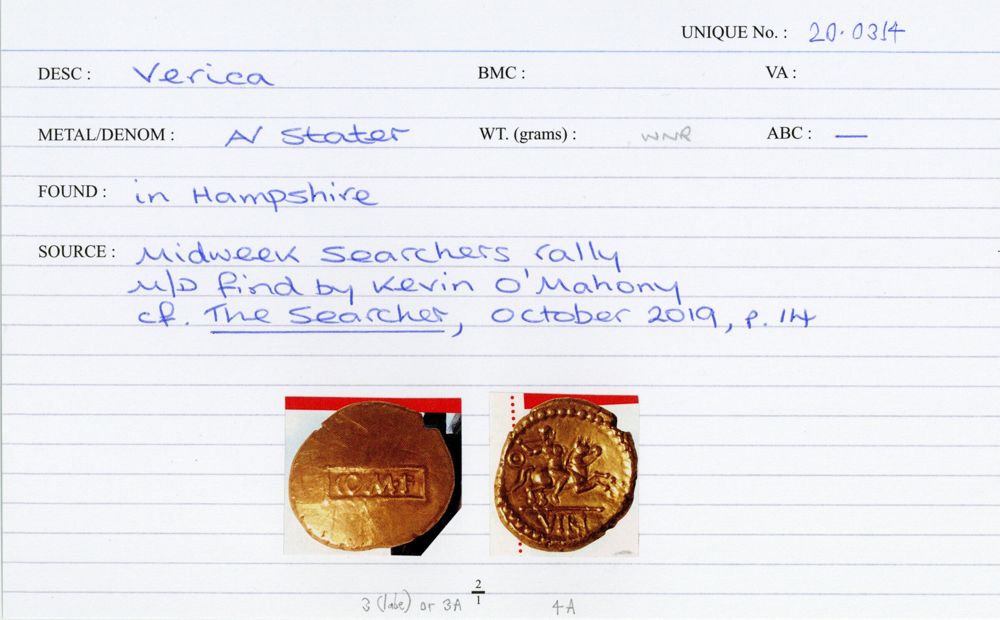 UNIQUE No. : 20.0314
DESC : Verica BMC : VA :
METAL/DENOM : AV Stater WT. (grams) : WNR ABC : —
FOUND : in Hampshire
SOURCE : Midweek Searchers rally
M/D find by Kevin O'Mahony
cf. The Searcher, October 2019, p. 14
COM·F
VIRI
2
1
3 (late) or 3A 4A